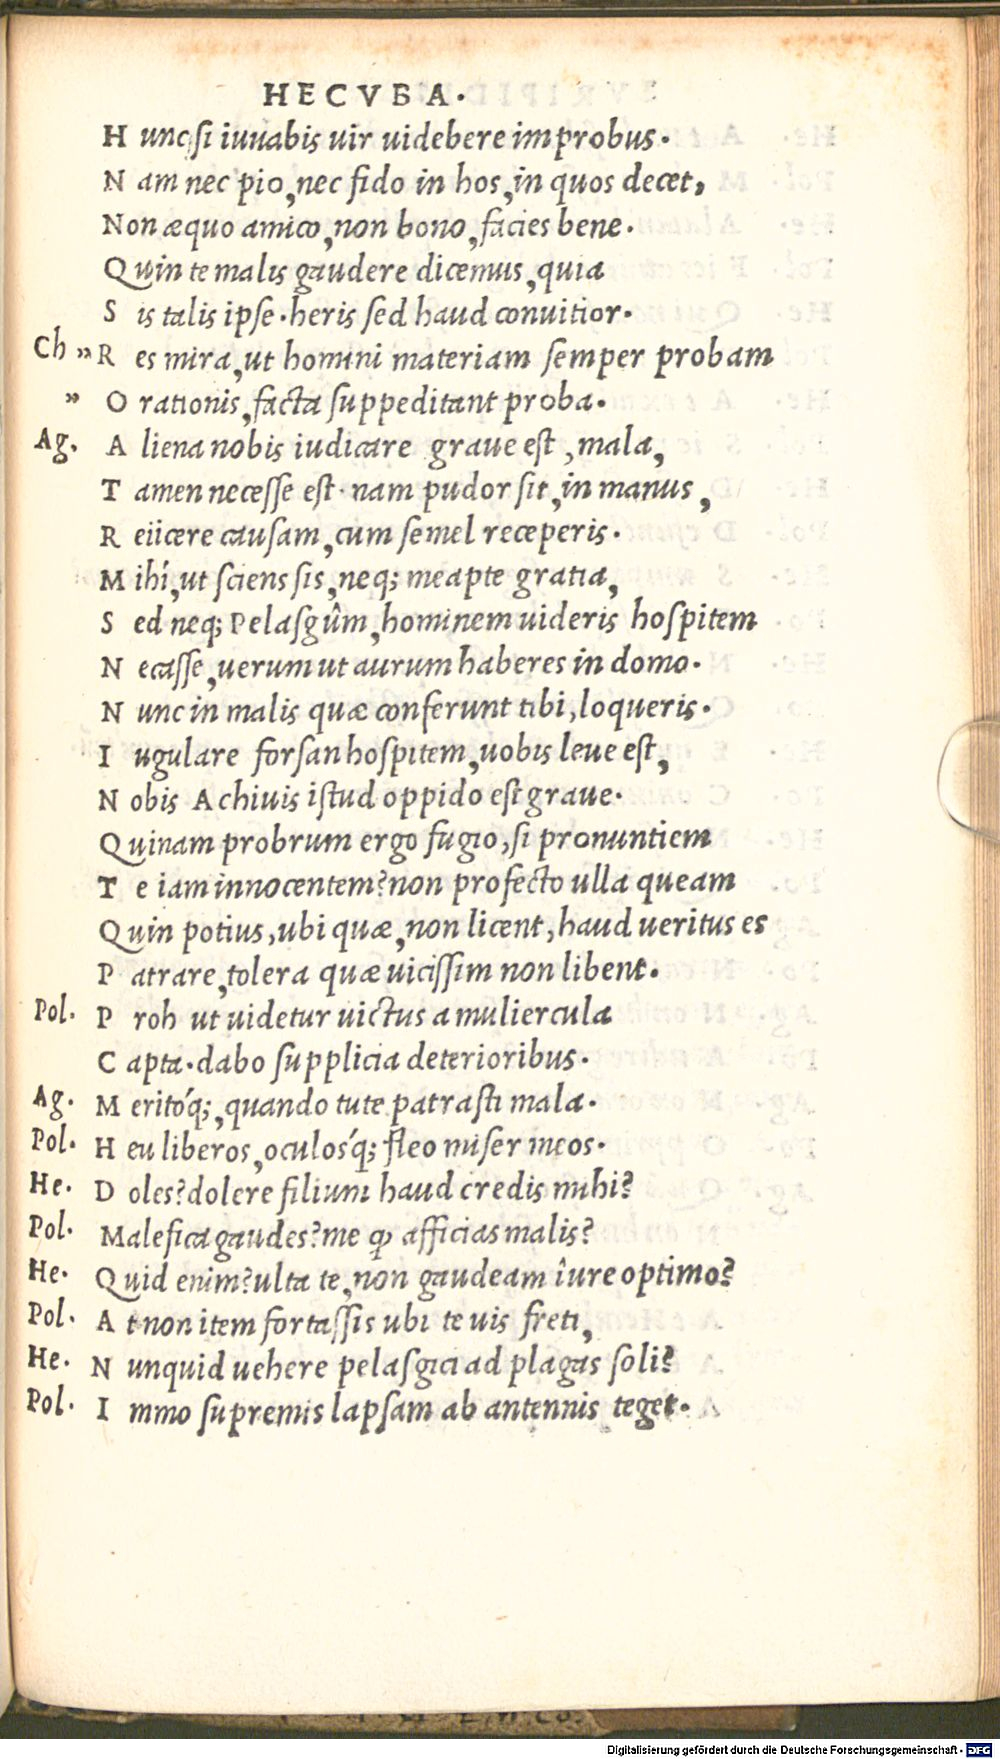 HECVBA.
H unc si iuuabis uir uidebere improbus.
N am nec pio, nec fido in hos, in quos decet,
Non æquo amico, non bono, facies bene.
Quin te malis gaudere dicemus, quia
S is talis ipse. heris sed haud conuitior.
Ch » R es mira, ut homini materiam semper probam
» O rationis, facta suppeditant proba.
Ag. A liena nobis iudicare graue est, mala,
T amen necesse est. nam pudor sit, in manus,
R eiicere causam, cum semel receperis.
M ihi, ut sciens sis, neq; meapte gratia,
S ed neq; Pelasgûm, hominem uideris hospitem
N ecasse, uerum ut aurum haberes in domo.
N unc in malis quæ conferunt tibi, loqueris.
I ugulare forsan hospitem, uobis leue est,
N obis Achiuis istud oppido est graue.
Quinam probrum ergo fugio, si pronuntiem
T e iam innocentem? non profecto ulla queam
Quin potius, ubi quæ, non licent, haud ueritus es
P atrare, tolera quæ uicissim non libent.
Pol. P roh ut uidetur uictus a muliercula
C apta. dabo supplicia deterioribus.
Ag. M eritó́q;, quando tute patrasti mala.
Pol. H eu liberos, oculosq́; fleo miser meos.
He. D oles? dolere filium haud credis mihi?
Pol. Malefica gaudes? me ꝙ afficias malis?
He. Quid enim? ulta te, non gaudeam iûre optimo?
Pol. A t non item fortassis ubi te uis freti,
He. N unquid uehere pelasgici ad plagas soli?
Pol. I mmo supremis lapsam ab antennis teget.
Digitalisierung gefördert durch die Deutsche Forschungsgemeinschaft - DFG